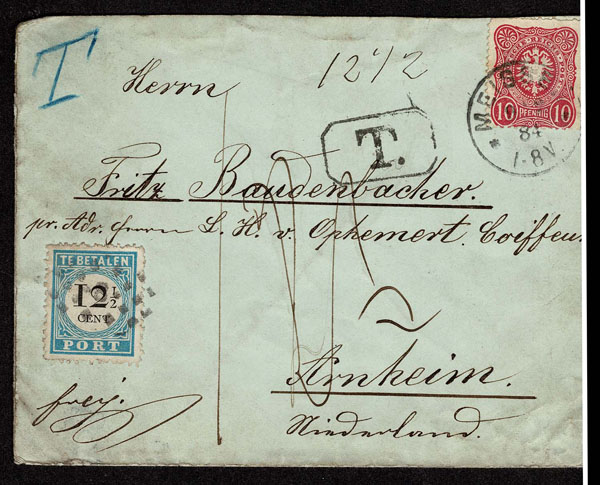 T
12 1/2
Herrn
T.
10 PFENNIG 10
84
7-8N
Fritz Baudenbacher.
pr. Adr. Herrn L. H. v. Ophemert. Coiffeu
TE BETALEN
12 1/2
CENT
PORT
Arnheim.
frei.
Niederland.